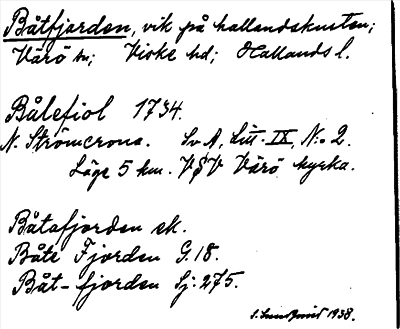 Båtfjorden, vik på hallandskusten;
Värö sn; Viske hd; Hallands l.
Bålefiol 1734.
N. Strömcrona. Sv A, Litt. IX, N:o 2.
Läge 5 km. V§V Värö kyrka.
Båtafjorden ek.
Båte Fjorden G. 18.
Båt-fjorden Sj: 275.
1938.